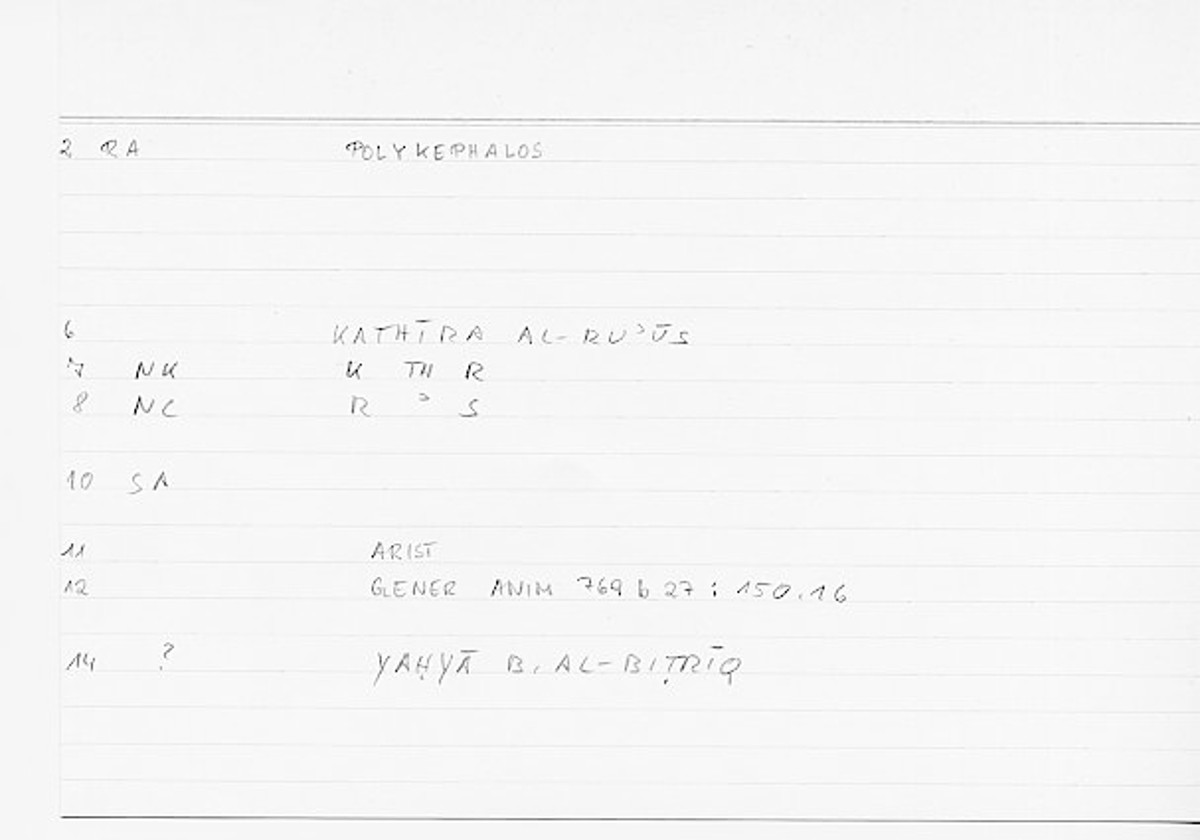 2 RA POLYKEPHALOS
6 KATHĪRA AL-RUʾŪS
7 NK K TH R
8 NC R ʾ S
10 SA
11 ARIST
12 GENER ANIM 769 b 27 : 150.16
14 ? YAḤYĀ B. AL-BIṬRĪQ